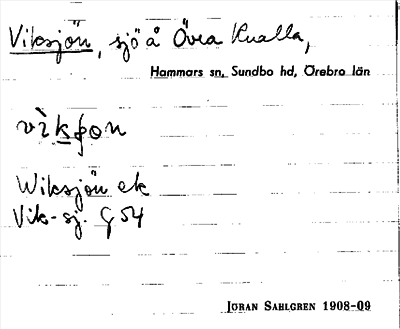 Viksjön, sjö å Övra Kvalla,
Hammars sn, Sundbo hd, Örebro län
vìkþon
Wiksjön ek
Vik-sj. G 54
JÖRAN SAHLGREN 1908-09